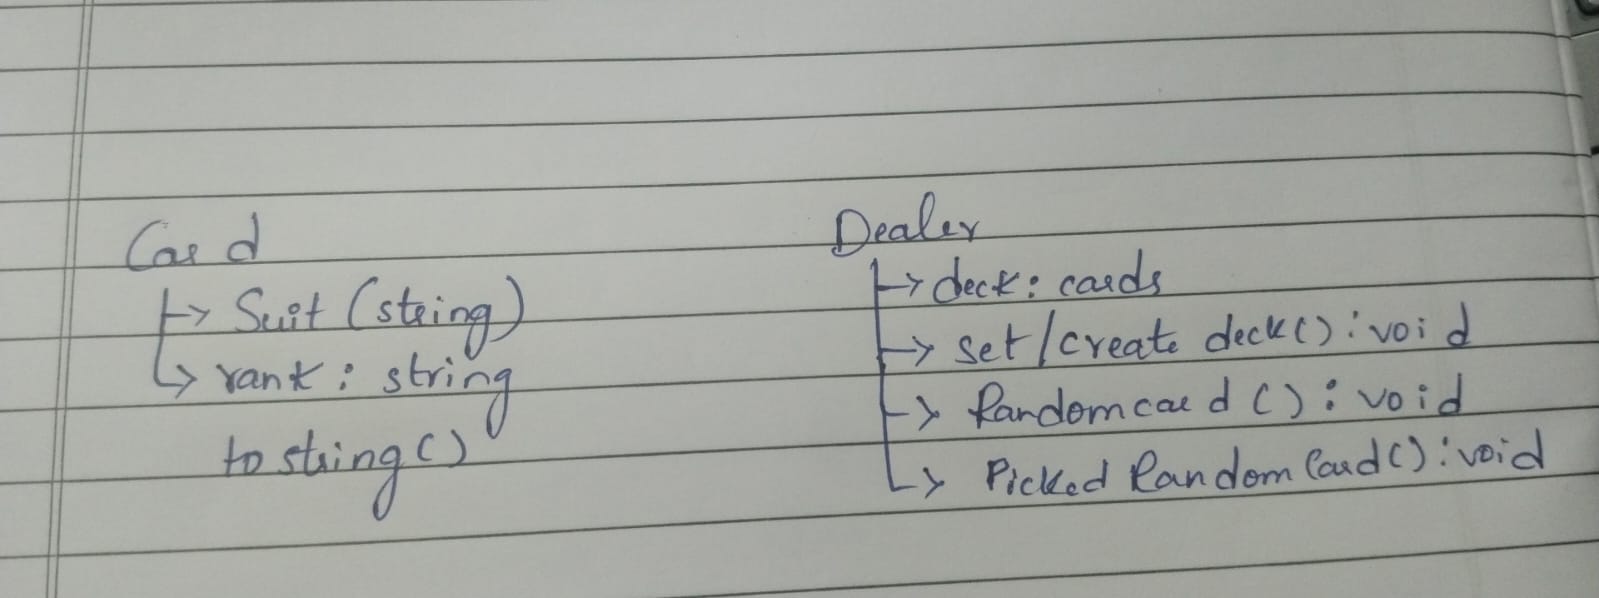 Card
→ Suit (string)
→ rank : string
to string()
Dealer
→ deck : cards
→ set/create deck() : void
→ Randomcard () : void
→ Picked Random Card() : void